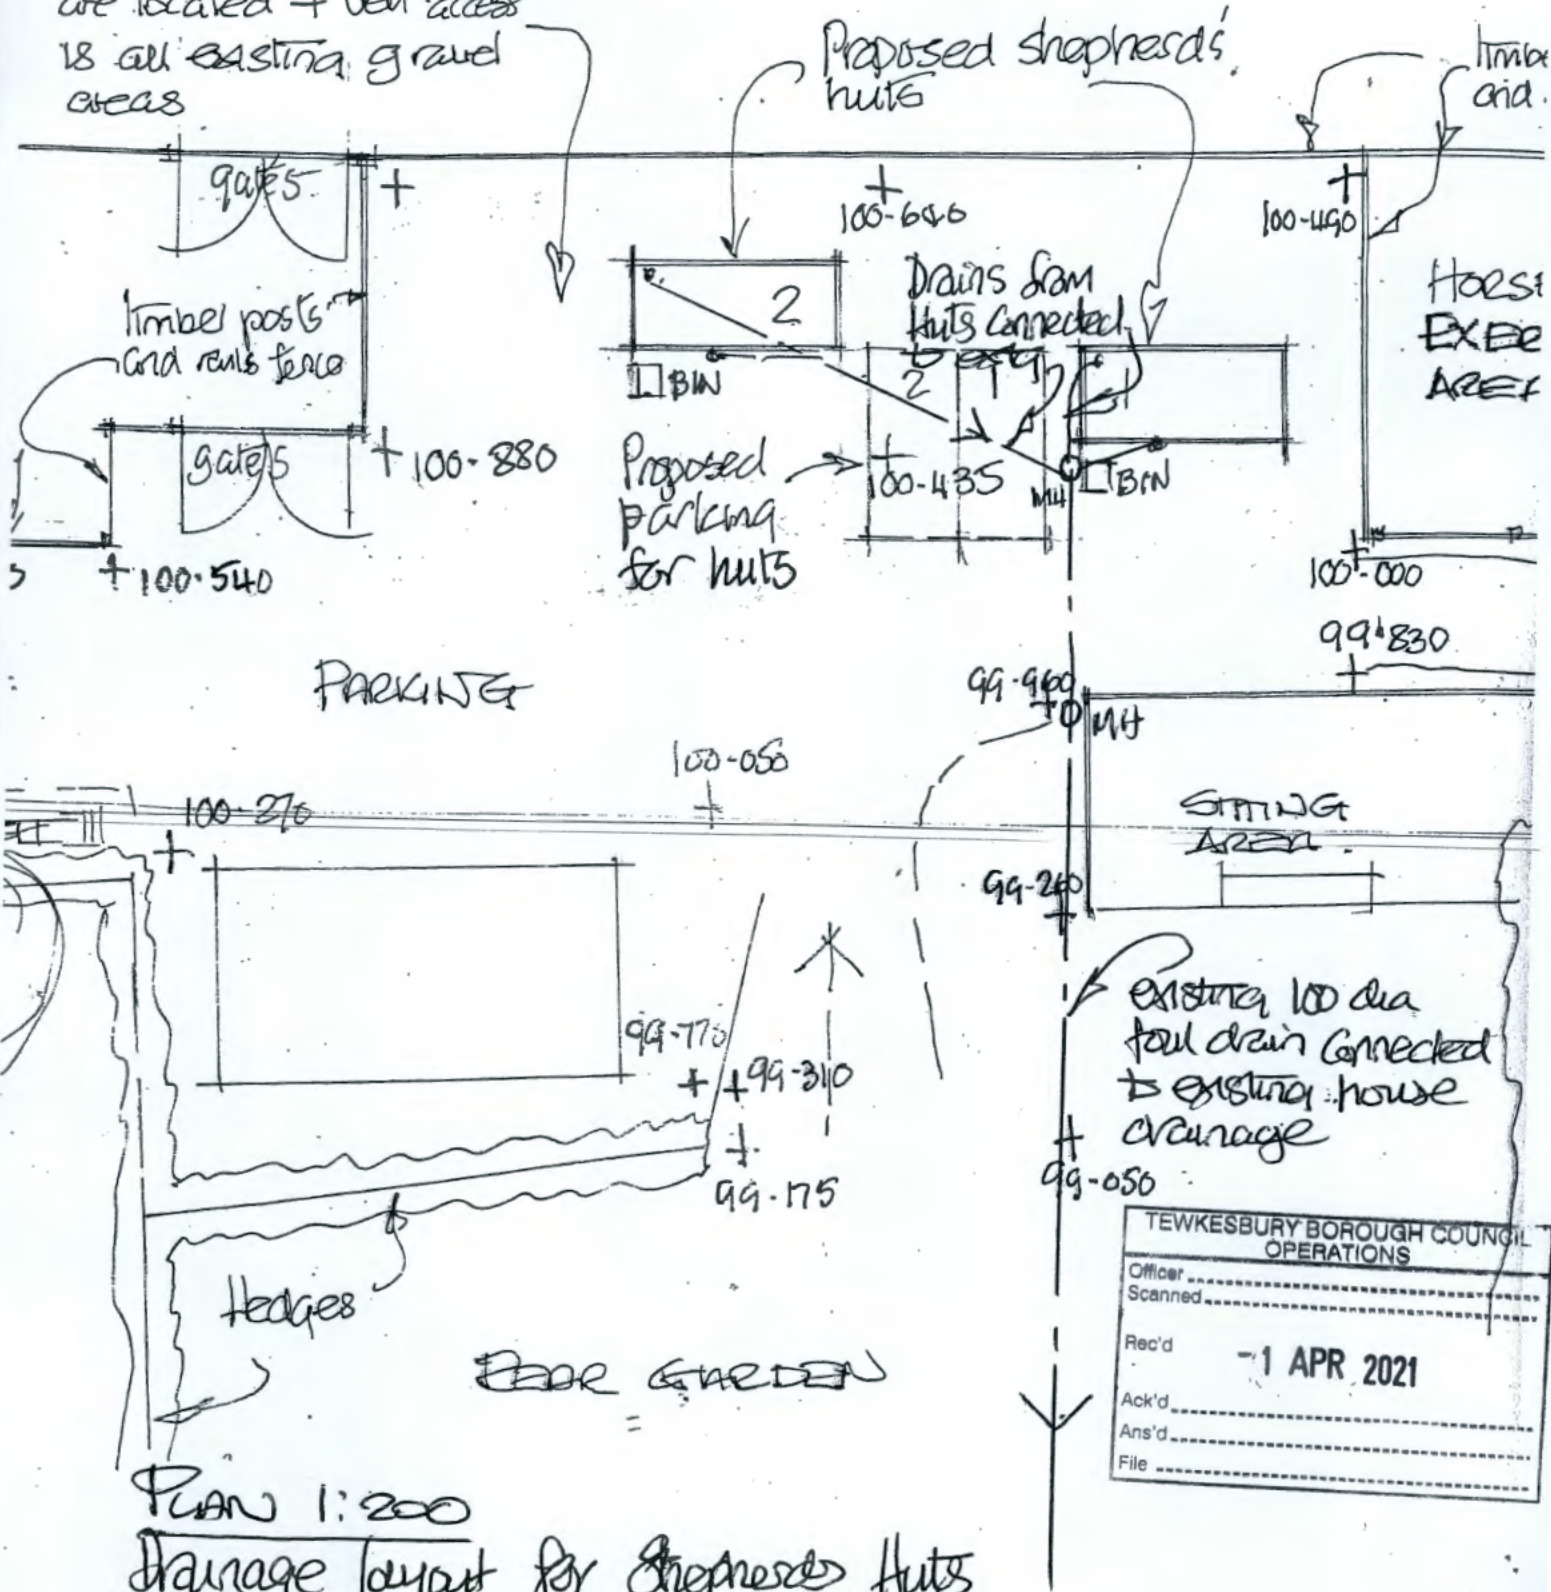 are located + veh access
is all existing gravel
areas
Proposed shepherds'
huts
timbe
and
gates
+
100-640
100-490
Drains from
Huts connected
to extg
HORSE
EXER
AREA
timber posts
and rails fence
2
2
1
1
BIN
MH
BIN
gates
100-880
Proposed
parking
for huts
100-435
100-540
100-000
99-830
PARKING
99-960
MH
100-050
100-270
SITTING
AREA
99-260
existing 100 dia
foul drain connected
to existing house
drainage
99-770
99-310
99-175
99-050
TEWKESBURY BOROUGH COUNCIL
OPERATIONS
Officer
Scanned
Rec'd -1 APR 2021
Ack'd
Ans'd
File
Hedges
REAR GARDEN
PLAN 1:200
Drainage layout for Shepherds Huts